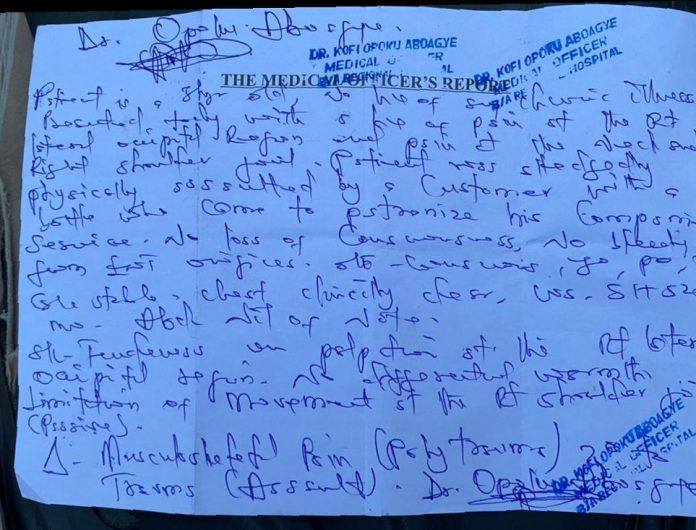 Dr. Opoku Aboagye.
DR. KOFI OPOKU ABOAGYE
MEDICAL OFFICER
DR. KOFI OPOKU ABOAGYE
MEDICAL OFFICER
HOSPITAL
THE MEDICAL OFFICER'S REPORT
Patient is a old No hx of any chronic illness
Presented today with a hx of pain at the Rt
lateral occipital Region and pain at the neck and
Right shoulder joint. Patient was allegedly
physically assaulted by a Customer with a
bottle who came to patronize his Company
Service. No loss of Consciousness, No bleeding
from orifices. O/E - Conscious,
stable. chest clinically clear, CVS - S1+S2
Abd - Nil of Note.
Tenderness on palpation at the Rt lateral
occipital region. No differential warmth
limitation of Movement at the Rt shoulder
(Passive).
Δ - Musculoskeletal Pain (Polytrauma)
Trauma (Assault). Dr. Opoku Aboagye
DR. KOFI OPOKU ABOAGYE
MEDICAL OFFICER
HOSPITAL